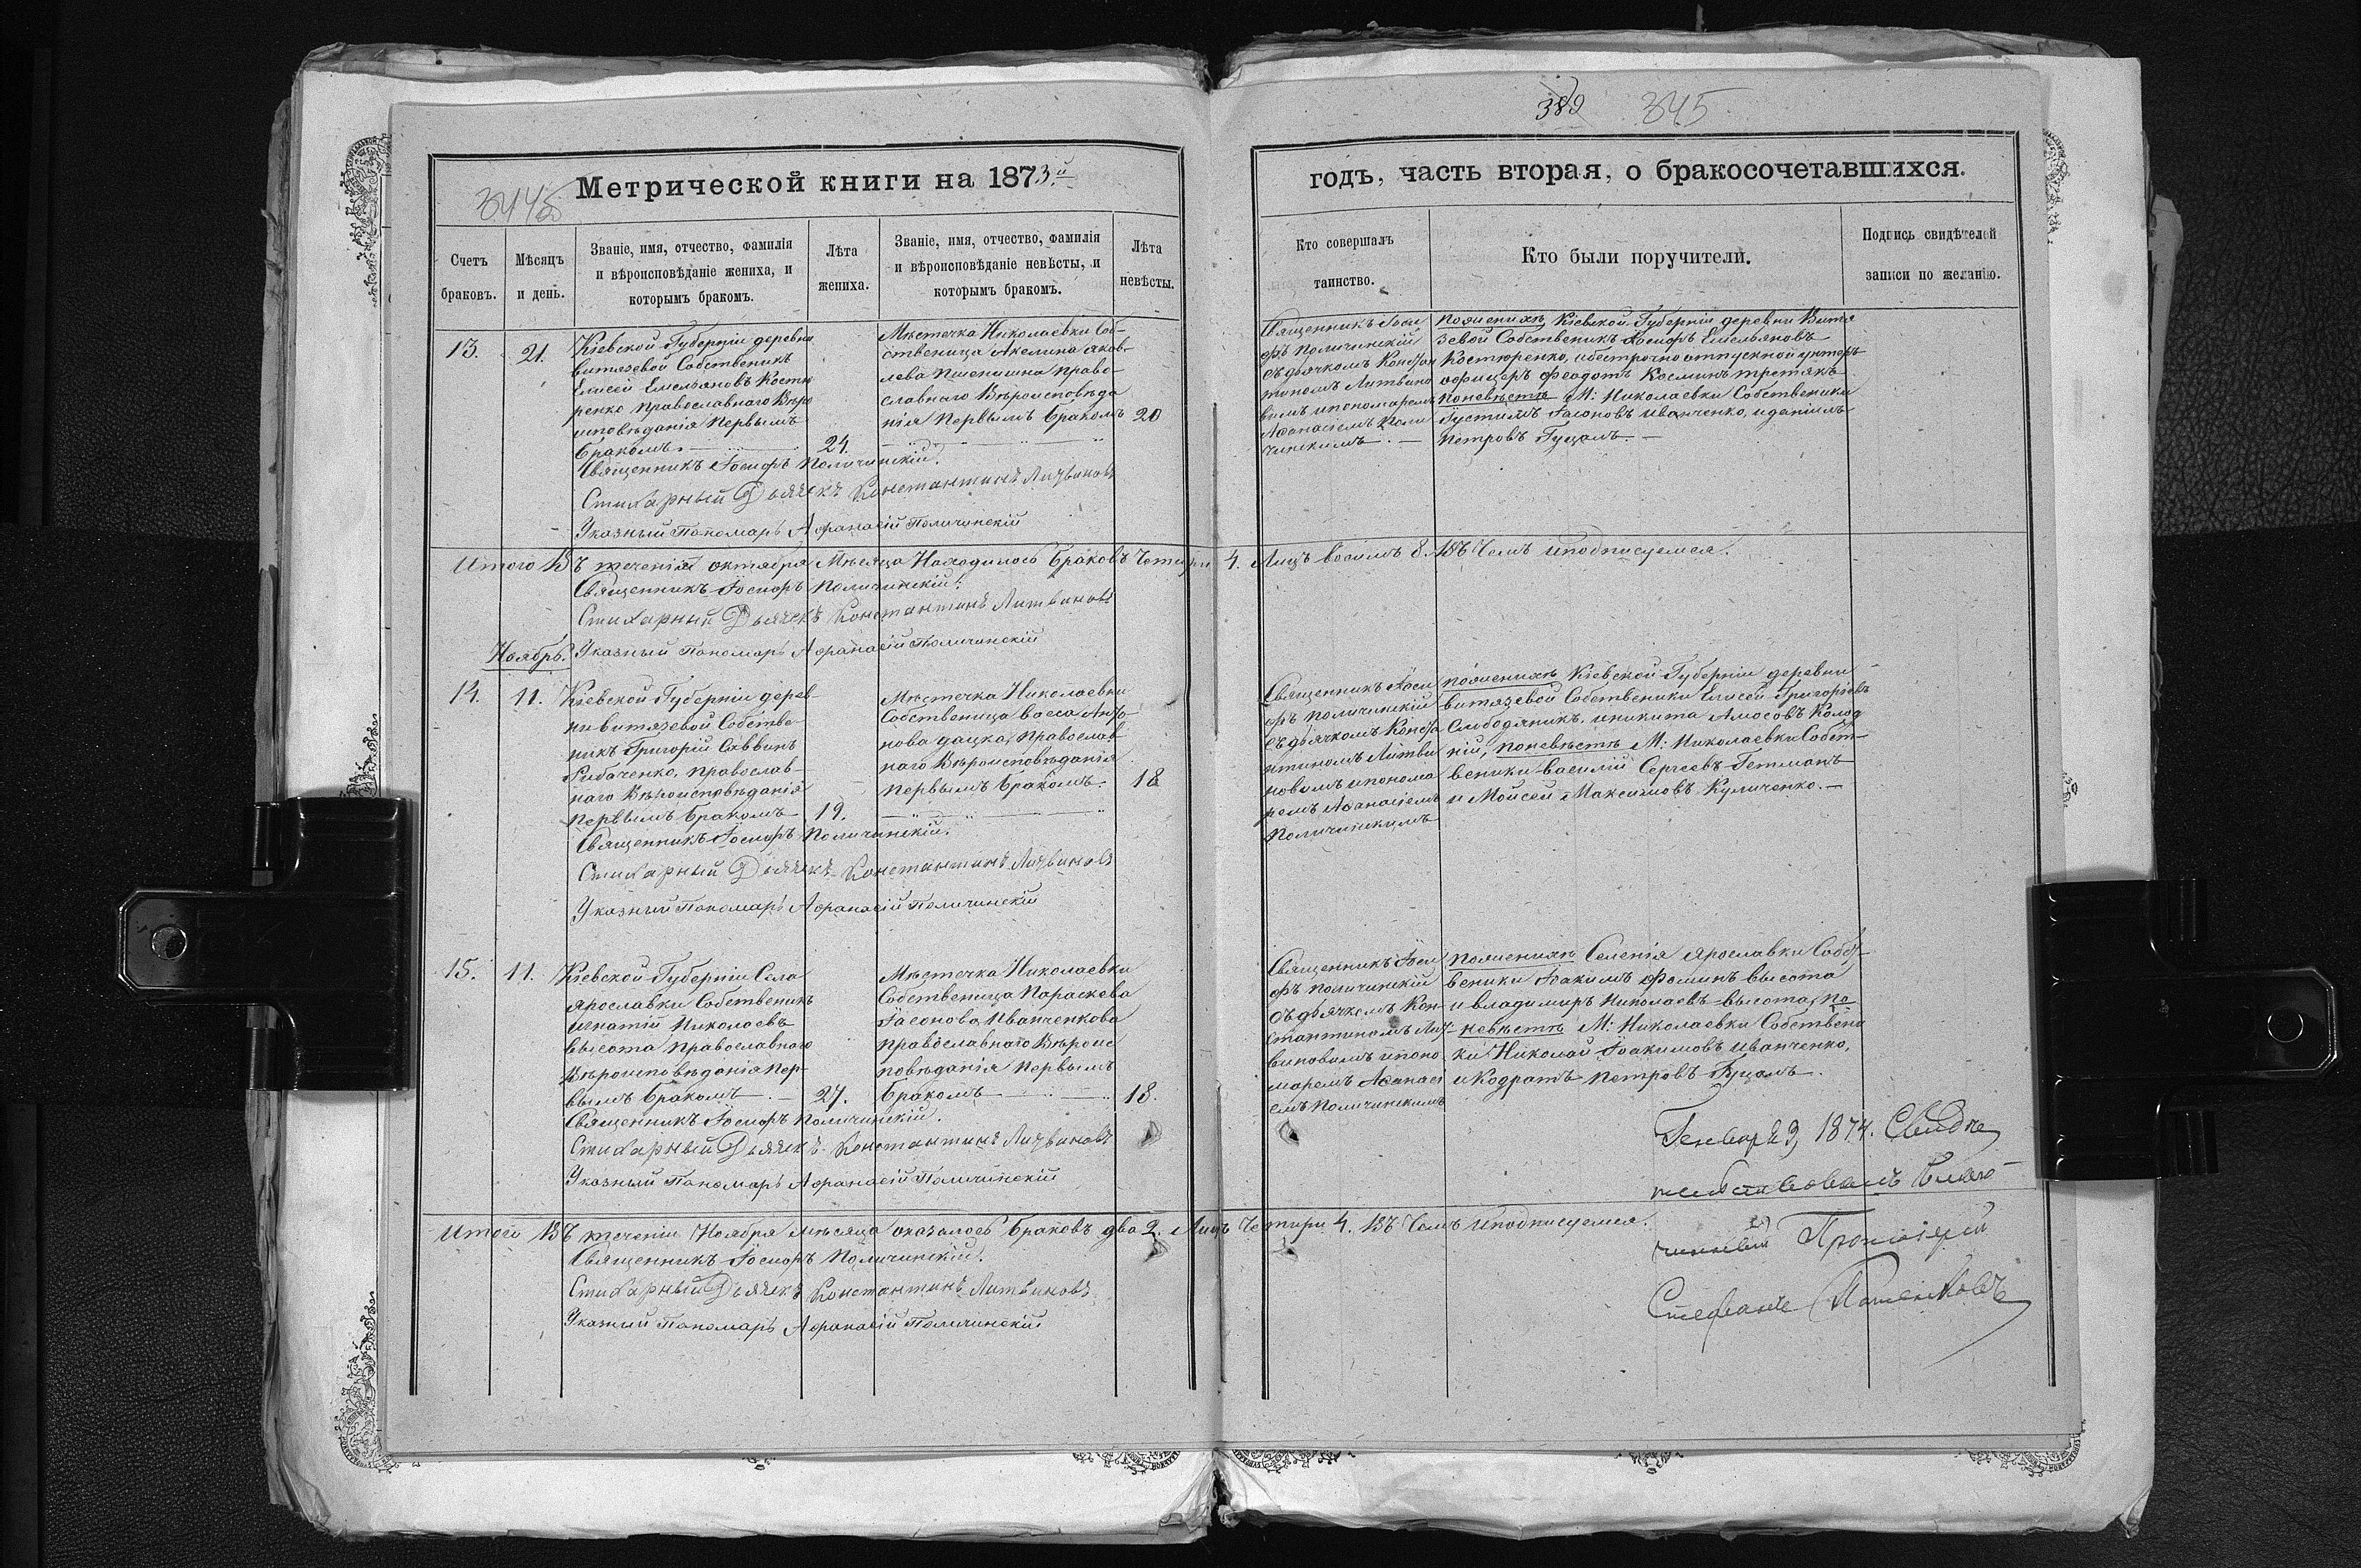 389 345
Метрической книги на 1873й
годъ, часть вторая, о бракосочетавшихся.
3445
Счетъ браковъ.
Мѣсяцъ и день.
Званіе, имя, отчество, фамилія и вѣроисповѣданіе жениха, и которымъ бракомъ.
Лѣта жениха.
Званіе, имя, отчество, фамилія и вѣроисповѣданіе невѣсты, и которымъ бракомъ.
Лѣта невѣсты.
Кто совершалъ таинство.
Кто были поручители.
Подпись свидѣтелей записи по желанію.
13.
21.
Кіевской Губерніи деревни
витязевой Собственикъ
Елисей Емельяновъ Костю
ренко православнаго Вѣро
исповѣданія Первымъ
Бракомъ
24.
Мѣстечка Николаевки Соб-
ственица Акелина яков-
лева Пшенишна право-
славнаго Вѣроисповѣда
нія Первымъ Бракомъ
20
Священникъ Іоси
фъ Поличинскій
съ дьячкомъ Констан
тиномъ Литвино
вымъ и пономаремъ
Афанасіемъ Поли
чинскимъ
По женихѣ Кіевской Губерніи деревни Витя
зевой Собственикъ Іосифъ Емельяновъ
Костюренко, и безсрочно отпускной унтеръ
офицеръ Феодотъ Косминъ третякъ
По невѣстѣ М: Николаевки Собственики
Густимъ Іасоновъ иванченко, и даніилъ
Петровъ Гуцалъ
Священникъ Іосифъ Поличинскій.
Стихарный Дьячекъ Константинъ Литвиновъ
Указный Пономарь Афанасій Поличинскій
Итого Въ теченіи октября Мѣсяца Находилось Браковъ Четыри 4. Лицъ восимъ 8. Въ Чемъ и подписуемся.
Священникъ Іосифъ Поличинскій.
Стихарный Дьячекъ Константинъ Литвиновъ
Указный Пономарь Афанасій Поличинскій
Ноябрь.
14.
11.
Кіевской Губерніи дерев-
ни витязевой Собстве-
никъ Григорій Саввинъ
Рибаченко, православ-
наго Вѣроисповѣданія
первымъ Бракомъ
19.
Мѣстечка Николаевки
Собственица васса Анто-
нова дацка, Православ
наго Вѣроисповѣданія
первымъ Бракомъ.
18
Священникъ Іоси
фъ Поличинскій
съ дьячкомъ Конста
нтиномъ Литви
новымъ и понома
ремъ Афанасіемъ
Поличинскимъ
По женихѣ Кіевской Губерніи деревни
витязевой Собственики Елисей Григоріевъ
Слободяникъ, и никита Амосовъ Колод
ній, По невѣстѣ М: Николаевки Собст-
веники василій Сергеевъ Гетманъ
и Мойсей Максимовъ Куличенко.
Священникъ Іосифъ Поличинскій.
Стихарный Дьячекъ Константинъ Литвиновъ
Указный Пономарь Афанасій Поличинскій
15.
11.
Кіевской Губерніи Села
ярославки Собственикъ
игнатій Николаевъ
высота православнаго
Вѣроисповѣданія Пер-
вымъ Бракомъ
27.
Мѣстечка Николаевки
Собственица Параскева
Іасонова Иванченкова
православнаго Вѣроис
повѣданія Первымъ
Бракомъ
18.
Священникъ Іоси
фъ Поличинскій
съ дьячкомъ Кон-
стантиномъ Лит-
виновымъ и поно
маремъ Афанасі
емъ Поличинскимъ
По женихѣ Селенія ярославки Собст-
веники Іоакимъ Фоминъ высота
и владимиръ Николаевъ высота, По
невѣстѣ М: Николаевки Собствени
ки Николай Іоакимовъ иванченко,
и Кодратъ Петровъ Гуцалъ.
Священникъ Іосифъ Поличинскій.
Стихарный Дьячекъ Константинъ Литвиновъ
Указный Пономарь Афанасій Поличинскій
Генваря 3, 1874. Свидѣ
тельствовалъ Благо-
Итого Въ теченіи Ноября мѣсяца оказалось Браковъ два 2. Лицъ Четыри 4. Въ Чемъ и подписуемся.
чинный Протоіерей
Стефанъ
Священникъ Іосифъ Поличинскій.
Стихарный Дьячекъ Константинъ Литвиновъ
Указный Пономарь Афанасій Поличинскій